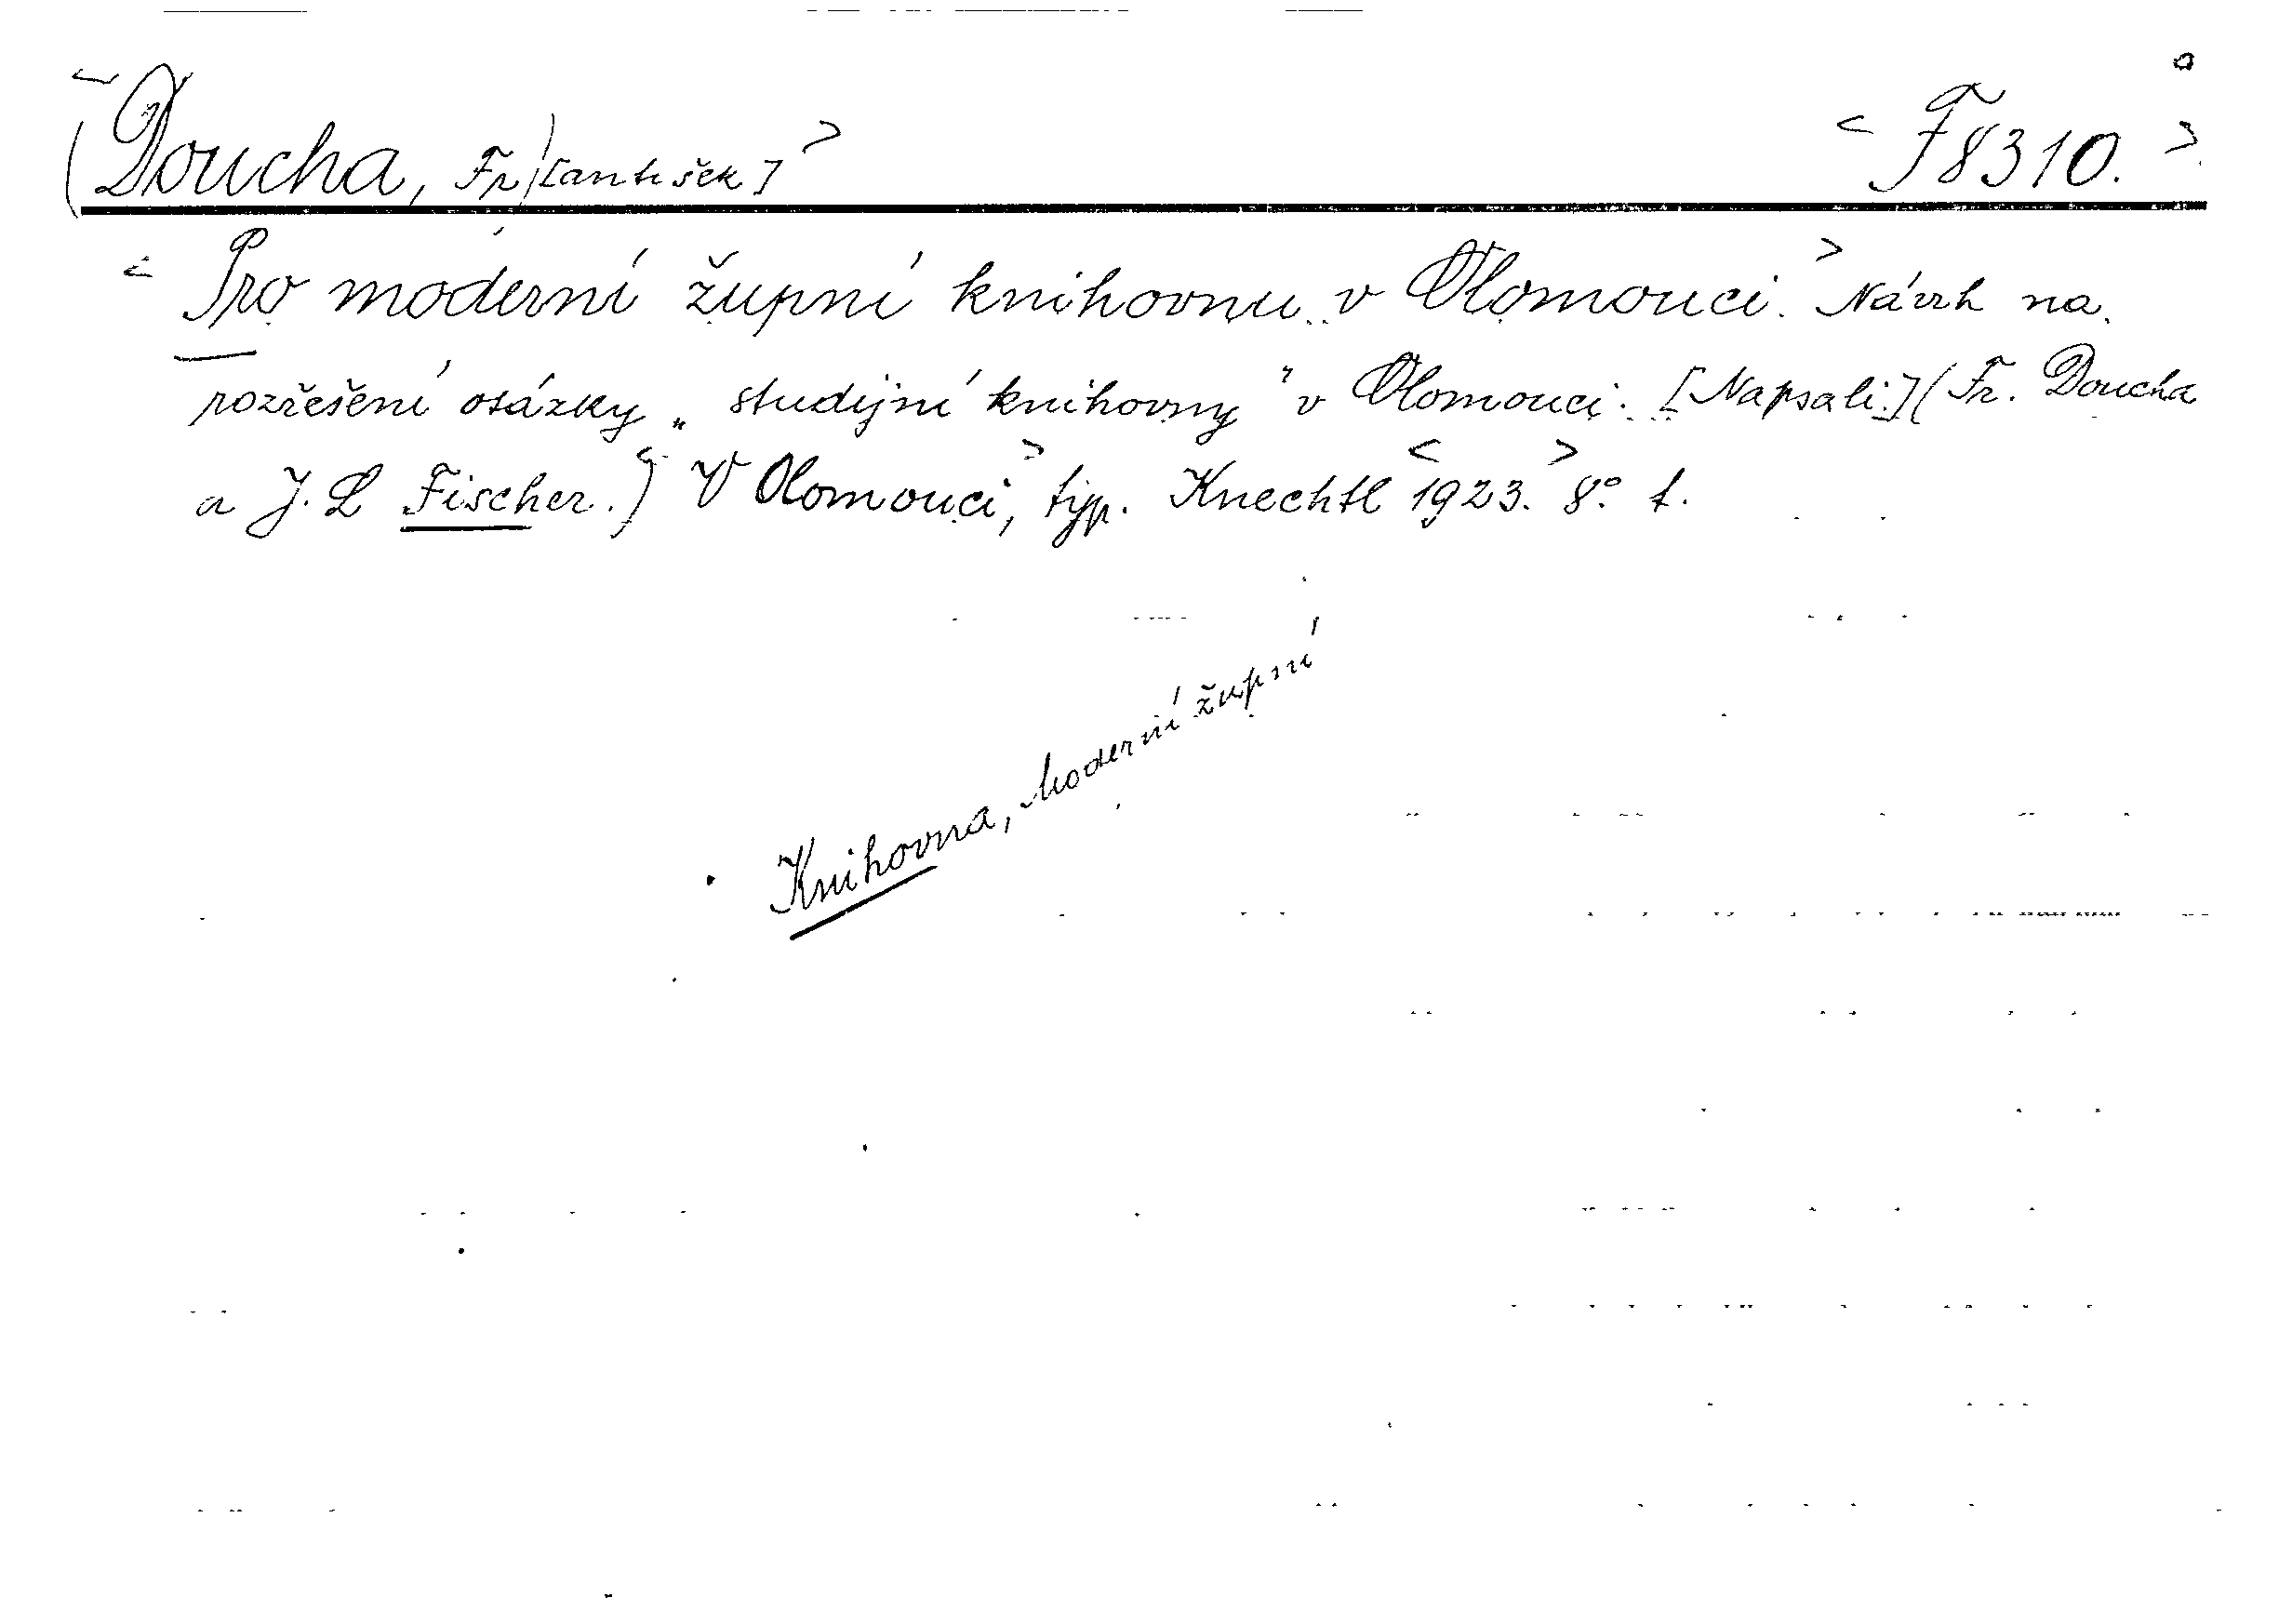 <(Doucha, Fr)[antišek]> <F8310.>
<Pro moderní župní knihovnu v Olomouci.> Návrh na
rozřešení otázky „studijní knihovny" v Olomouci. [Napsali:] (Fr. Doucha
a J. L Fischer.) <V Olomouci,> typ. Knechtl <1923.> 8° f.
Knihovna, moderní župní